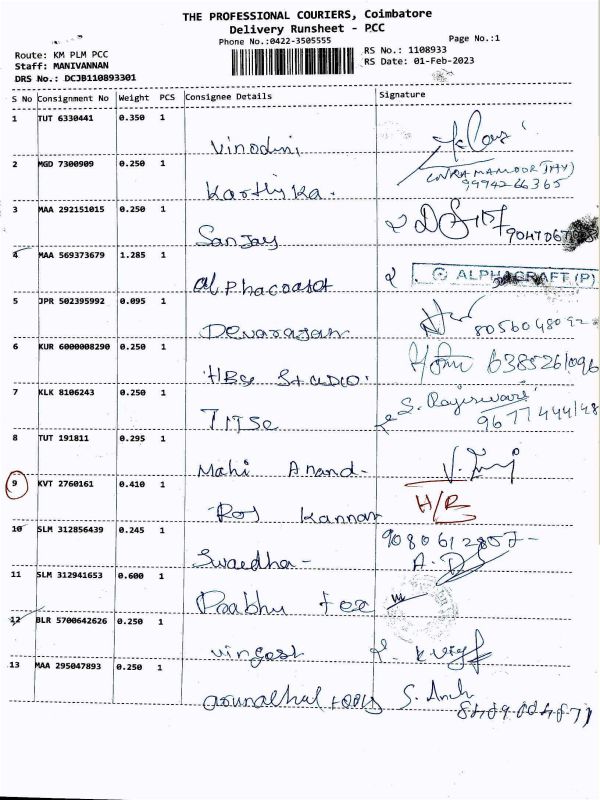 THE PROFESSIONAL COURIERS, Coimbatore
Delivery Runsheet - PCC
Phone No.:0422-3505555
Page No.:1
Route: KM PLM PCC
Staff: MANIVANNAN
DRS No.: DCJB110893301
RS No.: 1108933
RS Date: 01-Feb-2023
S No Consignment No Weight PCS Consignee Details Signature
1 TUT 6330441 0.350 1
Vinodini
2 MGD 7300909 0.250 1
Karthyka.
99942-66365
3 MAA 292151015 0.250 1
Sanjay
4 MAA 569373679 1.285 1
ALPHACRAFT (P)
5 JPR 502395992 0.095 1
Devarajan
6 KUR 6000008290 0.250 1
7 KLK 8106243 0.250 1
S. Rajeswari
8 TUT 191811 0.295 1
Mahi Anand-
9 KVT 2760161 0.410 1
H/R
Roj Kannan
10 SLM 312856439 0.245 1
9080612857-
Swaedha-
11 SLM 312941653 0.600 1
Prabhu tex
12 BLR 5700642626 0.250 1
13 MAA 295047893 0.250 1